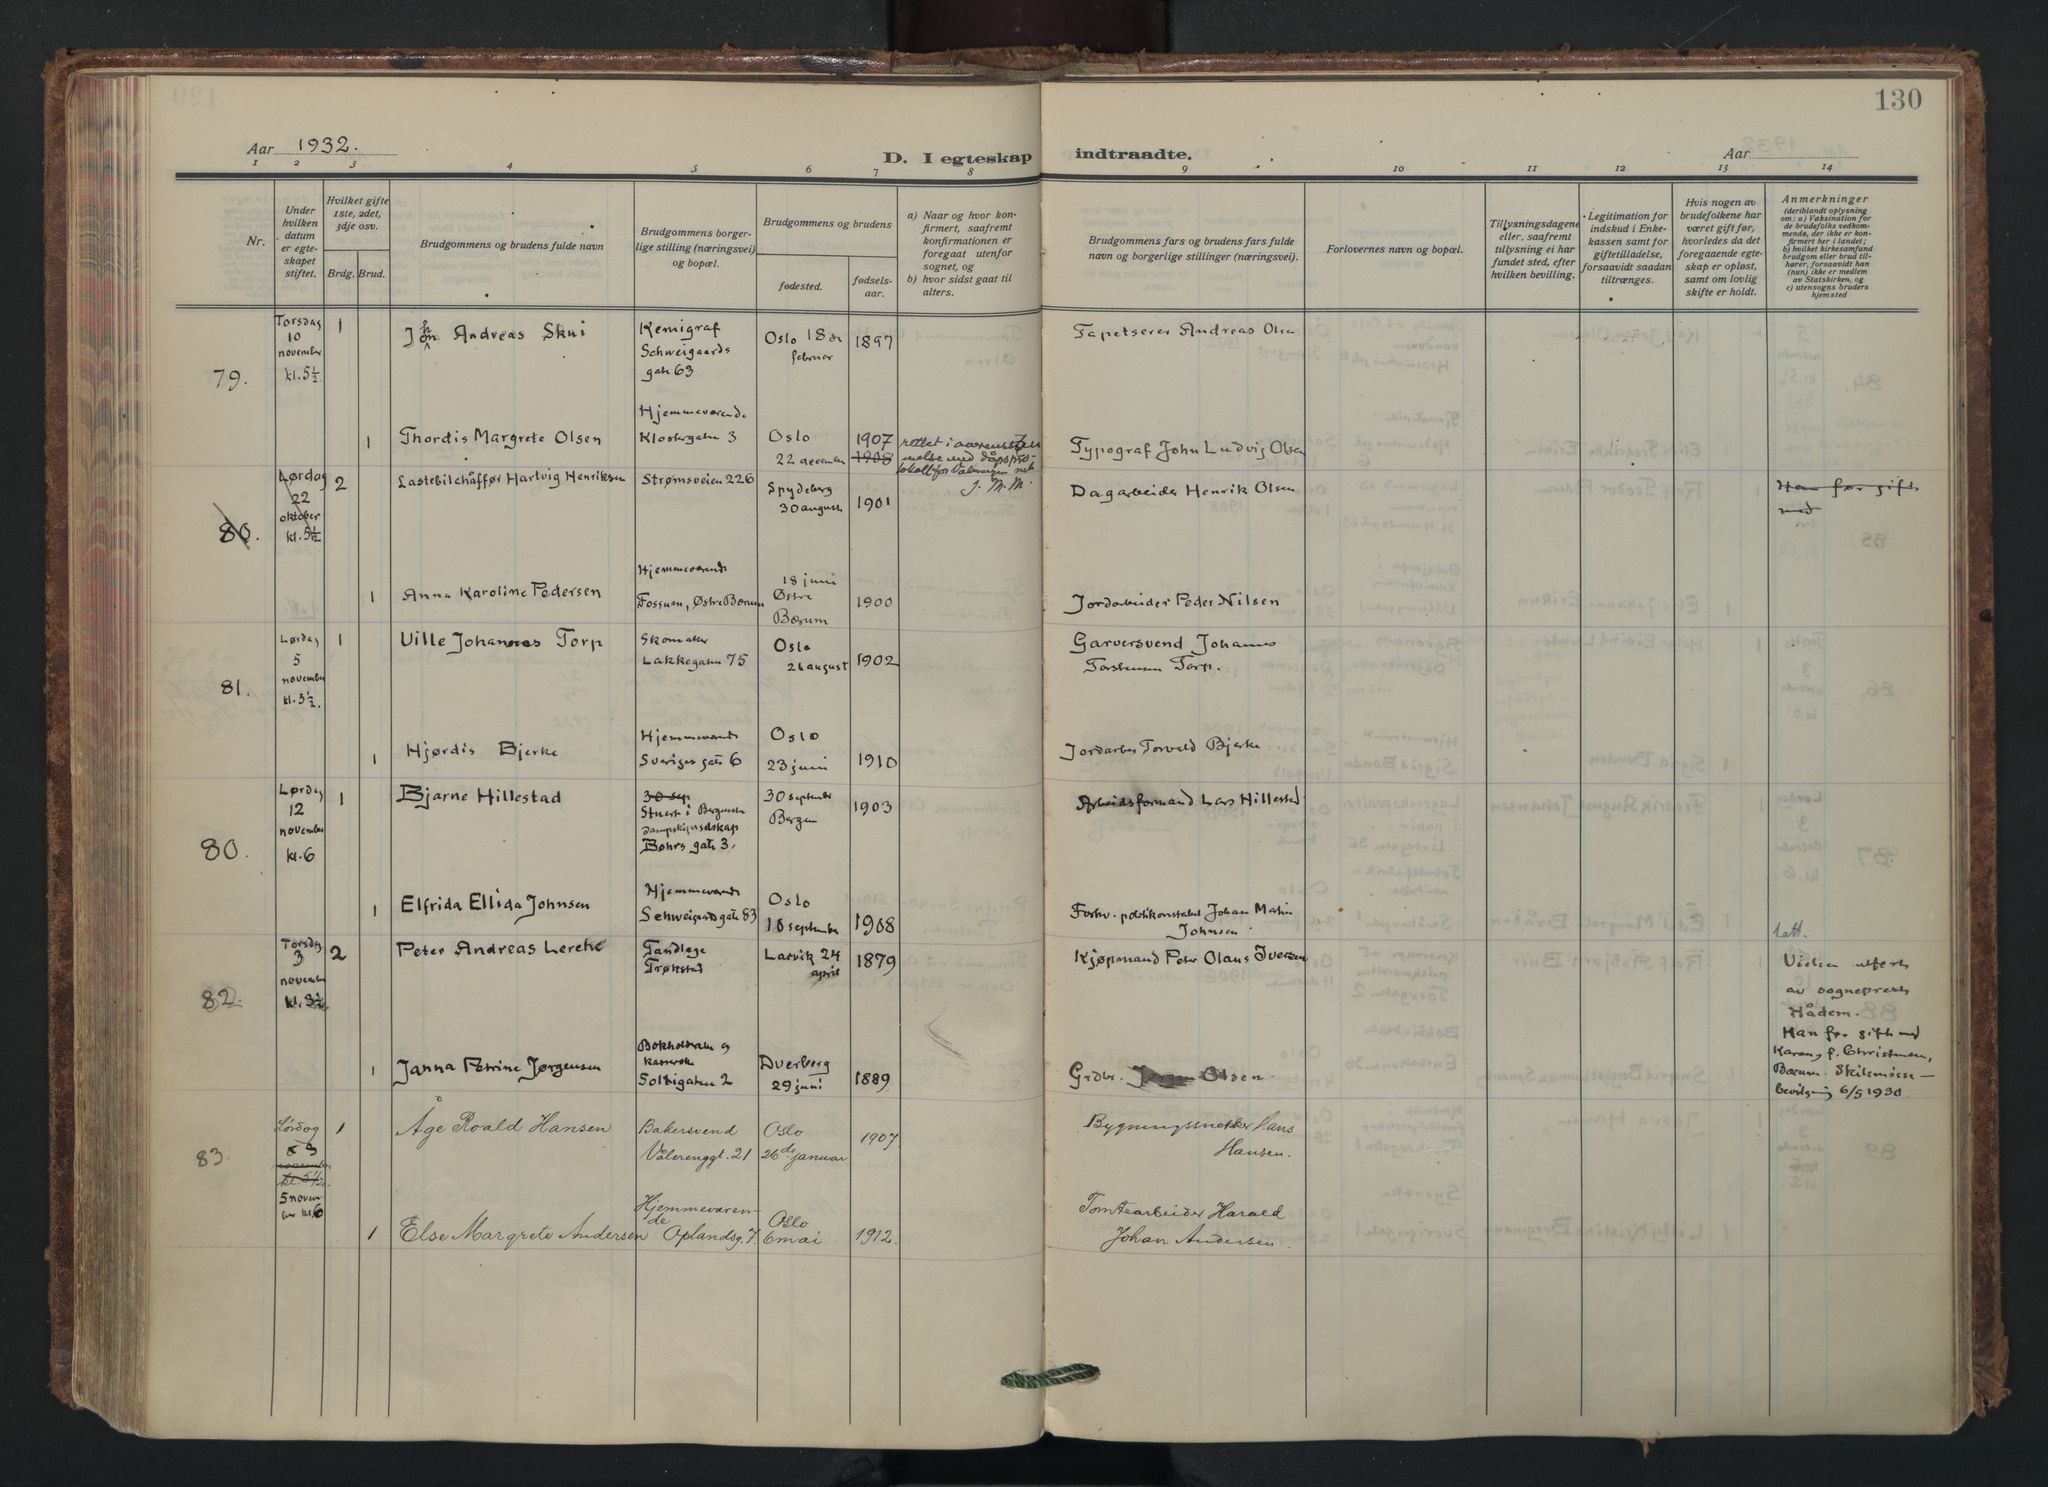 130
Aar 1932.
D. I egteskap indtraadte.
Aar
1 2 3 4 5 6 7 8 9 10 11 12 13 14
Nr.
Under hvilken datum er egteskapet stiftet.
Hvilket gifte 1ste, 2det, 3dje osv.
Brdg. Brud.
Brudgommens og brudens fulde navn
Brudgommens borgerlige stilling (næringsvei) og bopæl.
Brudgommens og brudens
fødested.
fødselsaar.
a) Naar og hvor konfirmert, saafremt konfirmationen er foregaat utenfor sognet, og
b) hvor sidst gaat til alters.
Brudgommens fars og brudens fars fulde navn og borgerlige stillinger (næringsvei).
Forlovernes navn og bopæl.
Tillysningsdagene eller, saafremt tillysning ei har fundet sted, efter hvilken bevilling.
Legitimation for indskud i Enkekassen samt for giftetilladelse, forsaavidt saadan tiltrænges.
Hvis nogen av brudefolkene har været gift før, hvorledes da det foregaaende egteskap er opløst, samt om lovlig skifte er holdt.
Anmerkninger
(deriblandt oplysning om: a) Vaksination for de brudefolks vedkommende, der ikke er konfirmert her i landet; b) hvilket kirkesamfund brudgom eller brud tilhører, forsaavidt han (hun) ikke er medlem av Statskirken, og c) utensogns bruders hjemsted
79.
Torsdag 10 november kl. 5½
1
Andreas Skui
Kemigraf
Schweigaards
gate 63
Oslo 18 de
februar
1897
Tapetserer Andreas Olsen
1
Thordis Margrete Olsen
Hjemmeværende
Klostergaten 3
Oslo
22 december
1907
1908
J. M. M.
Typograf John Ludvig Olsen
80.
Lørdag 22 oktober kl. 5½
2
Lastebilchåffør Hartvig Henriksen
Strømsveien 226
Spydeberg
30 august
1901
Dagarbeider Henrik Olsen
Han før gift
med
1
Anna Karoline Pedersen
Hjemmeværende
Fossum, Østre Bærum
18 juni
Østre
Bærum
1900
Jordarbeider Peder Nilsen
81.
Lørdag 5 november kl. 5½.
1
Ville Johannes Torp
Skomaker
Lakkegaten 75
Oslo
26 august
1902
Garversvend Johannes
Torstensen Torp.
1
Hjørdis Bjerke
Hjemmeværende
Sveriges gate 6
Oslo
23 juni
1910
Jordarber Torvald Bjerke
80.
Lørdag 12 november kl. 6
1
Bjarne Hillestad
30 sep
Stuert i Bergenske
Dampskipsselskap
Bøhrs gate 3.
30 september
Bergen
1903
Arbeidsformand Lars Hillestad
1
Elfrida Ellida Johnsen
Hjemmeværende
Schweigaardsgate 83
Oslo
10 september
1908
Forhv. politikonstabel Johan Martin
Johnsen
82.
Torsdag 3 november kl. 3½
2
Peter Andreas Lerche
Tandlege
Trøkstad
Larvik 24
april
1879
Kjøpmand Peter Olaus Iversen
1 att.
Vielsen utført
av sogneprest
Hådem.
Han før gift med
Karen f. Christensen,
Bærum. Skilsmisse-
bevilgning 6/5 1930
1
Janna Petrine Jørgensen
Bokholderske og
kasserske
Solligaten 2
Dverberg
29 juni
1889
Grdbr. Olsen
83.
Lördag
november
kl. 5½.
5 novem
ber kl. 6
1
Åge Roald Hansen
Bakersvend
Vålerenggt. 21
Oslo
26de januar
1907
Bygningssnekker Hans
Hansen.
1
Else Margrete Andersen
Hjemmeværen-
de
Oplandsg. 7.
Oslo
6 mai
1912.
Tomtearbeider Harald
Johan Andersen.